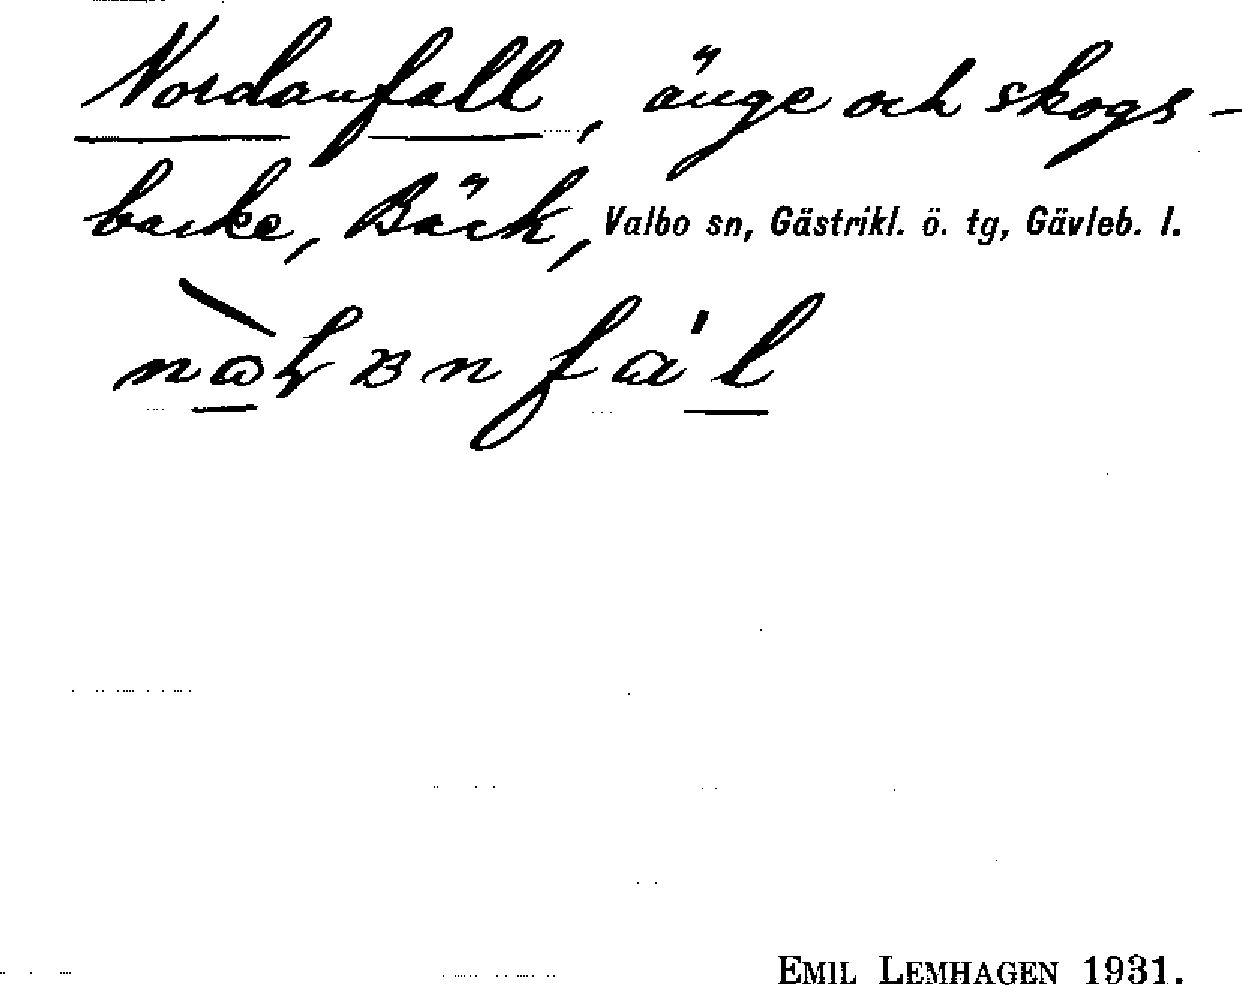 Nordanfall, änge och skogs-
backe, Bäck, Valbo sn, Gästrikl. ö. tg, Gävleb. l.
EMIL LEMHAGEN 1931.